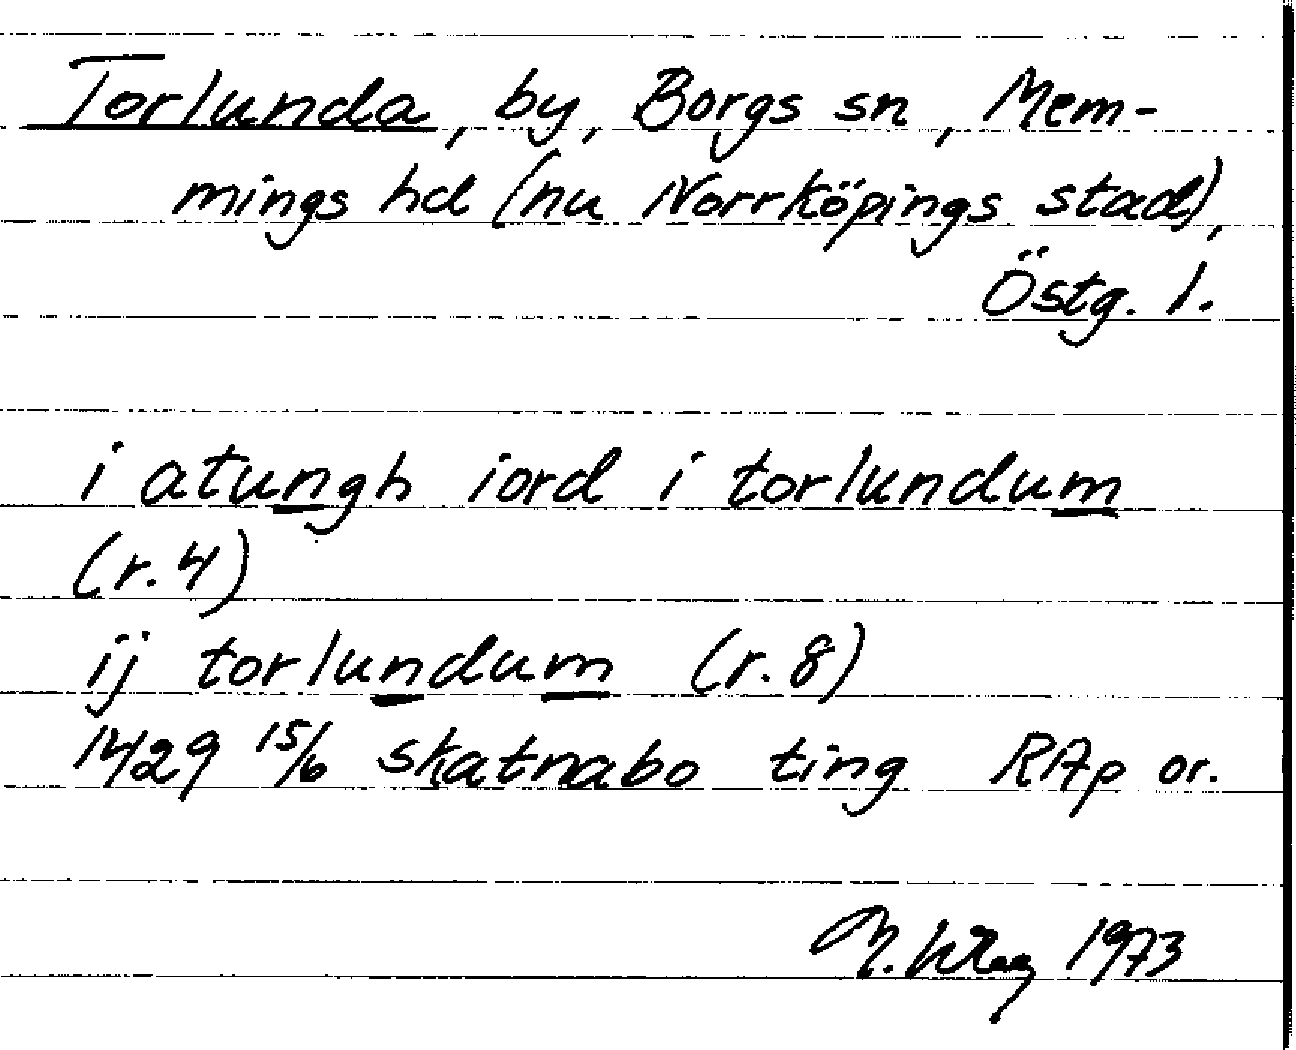 Torlunda, by, Borgs sn, Mem-
mings hd (nu Norrköpings stad),
Östg. l.
i atungh iord i torlundum
(r. 4)
ij torlundum (r. 8)
1429 15/6 skatnabo ting RAp or.
1973